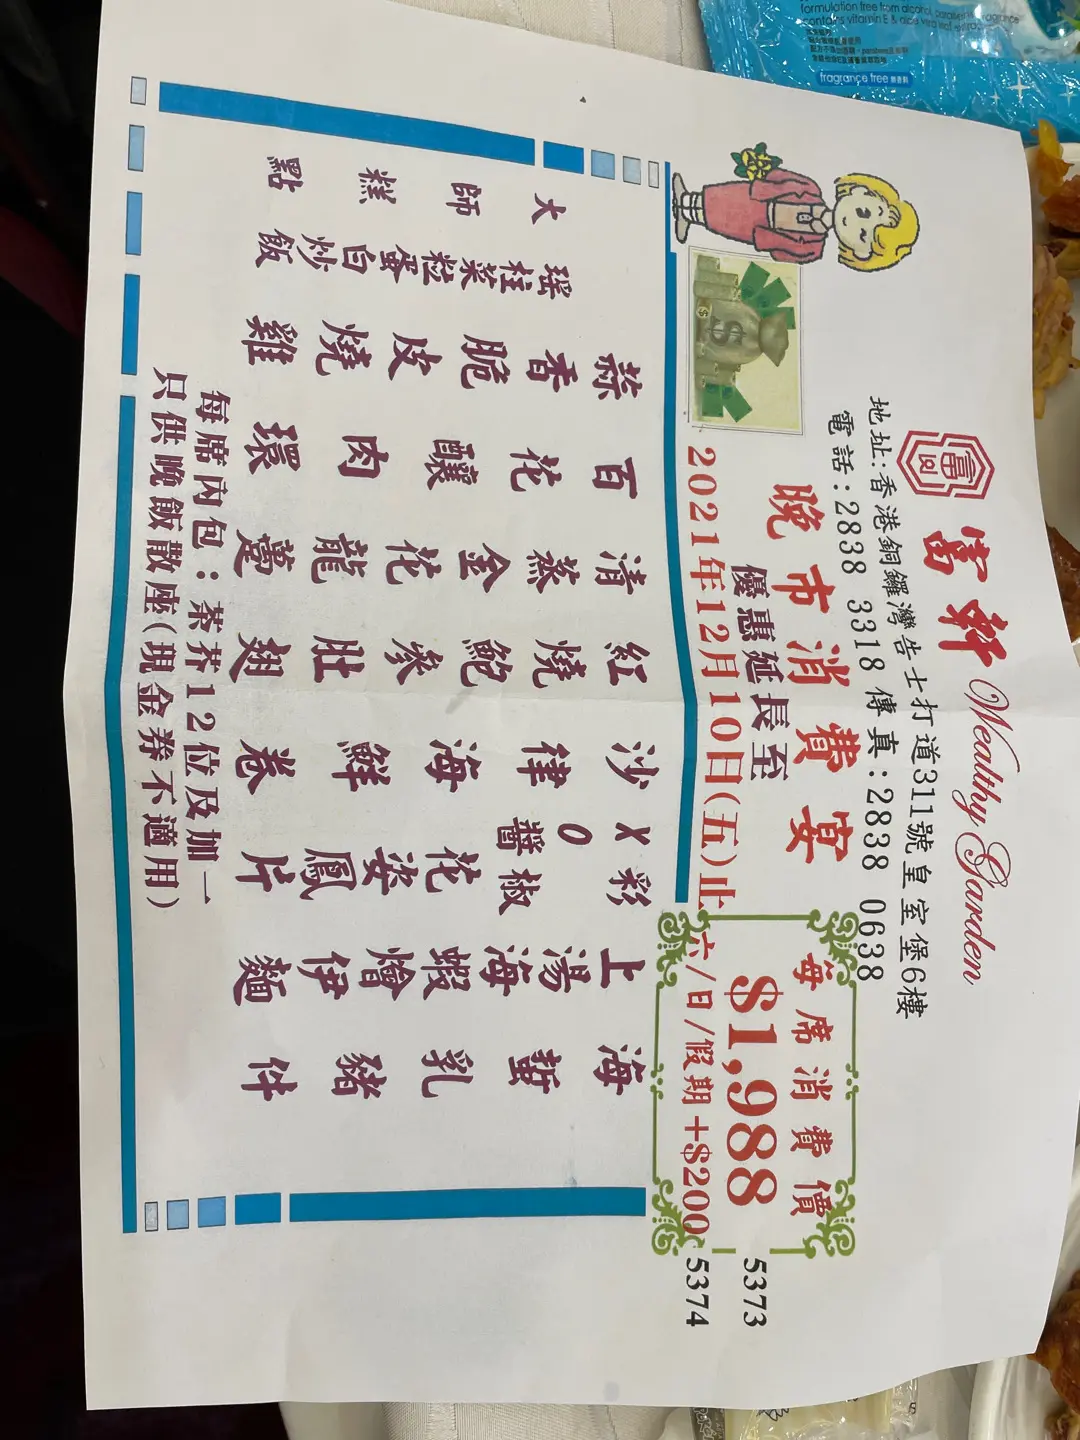 富軒 Wealthy Garden
富
地址:香港銅鑼灣告士打道311號皇室堡6樓
電話:2838 3318 傳真:2838 0638
晚市消費宴
優惠延長至
2021年12月10日(五)止
每席消費價
$1,988
六/日/假期+$200
5373
5374
海蜇乳豬件
上湯海蝦燴伊麵
XO醬彩椒花姿鳳片
沙律海鮮卷
紅燒鮑參肚翅
清蒸金花龍躉
百花釀肉環
蒜香脆皮燒雞
瑤柱菜粒蛋白炒飯
大師糕點
每席內包:茶芥12位及加一
只供晚飯散座(現金券不適用)
formulation free from alcohol, paraben & fragrance
contains vitamin E & aloe vera leaf
fragrance free 無香料